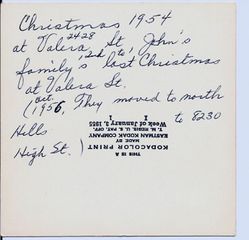 Christmas 1954
at Valera 2428 St, John's
family's last Christmas
at Valera St.
(Oct. 1956, They moved to north
to 8230
Hills
High St.)
THIS IS A
KODACOLOR PRINT
MADE BY
EASTMAN KODAK COMPANY
T. M. REGIS. U. S. PAT. OFF.
Week of January 3, 1955